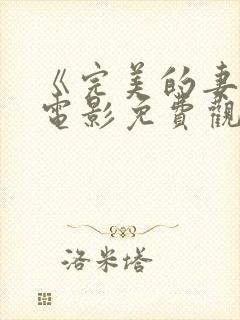 《完美的妻
電影免費觀
洛米塔